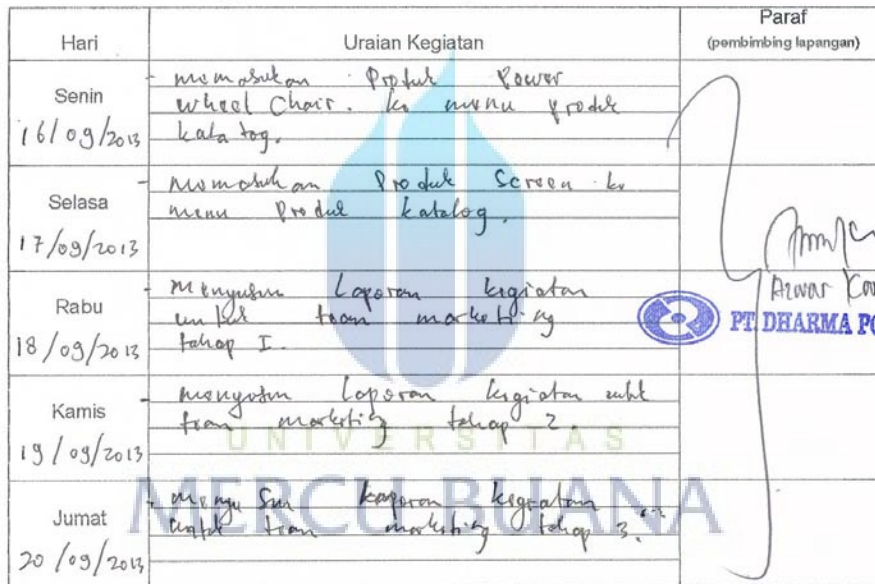 Hari Uraian Kegiatan Paraf
(pembimbing lapangan)
Senin
16/09/2013
- memasukan Produk Power
wheel Chair. ke menu produk
katalog.
Selasa
17/09/2013
- Memasukan Produk Screen ke
menu Produk katalog.
Rabu
18/09/2013
- Menyusun Laporan kegiatan
untuk team marketing
tahap I.
Kamis
19/09/2013
- menyusun Laporan kegiatan untk
team marketing tahap 2.
Jumat
20/09/2013
- menyusun laporan kegiatan
untuk team marketing tahap 3.
Azwar
PT. DHARMA PO
UNIVERSITAS
MERCU BUANA